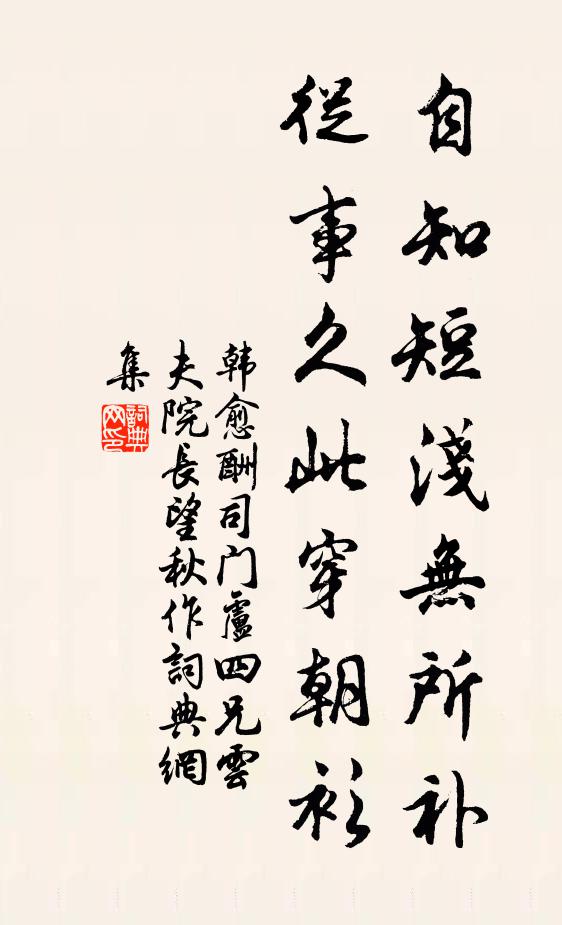 自知短淺無所补
從事久此穿朝衫
韩愈酬司门盧四兄雲
夫院長望秋作詞典網
集
詞典网印